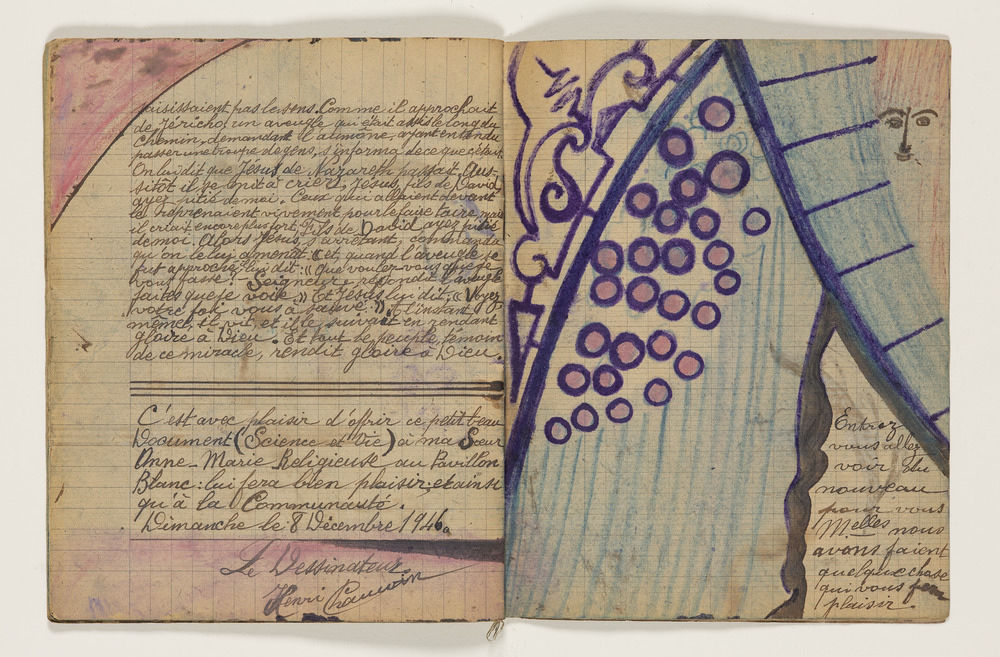 saisissaient pas le sens. Comme il approchait
de Jéricho, un aveugle, qui était assis le long du
chemin, demandant l'aumône, ayant entendu
passer une troupe de gens, s'informa de ce que c'était.
On lui dit que Jésus de Nazareth passait. Aus-
sitôt il se mit à crier: Jésus, fils de David,
ayez pitié de moi. Ceux qui allaient devant
le reprenaient vivement pour le faire taire, mais
il criait encore plus fort. Fils de David ayez pitié
de moi. Alors Jésus, s'arrêtant, commanda
qu'on le lui amenât et, quand l'aveugle se
fut approché, lui dit: « Que voulez-vous que je
vous fasse? Seigneur, répondit l'aveugle
faites que je voie. » Et Jésus lui dit: « Voyez
votre foi vous a sauvé. ». À l'instant
même, il vit, et il le suivait en rendant
gloire à Dieu. Et tout le peuple, témoin
de ce miracle, rendit gloire à Dieu.
C'est avec plaisir d'offrir ce petit beau
Document (Science et Vie) à ma Sœur
Anne-Marie Religieuse au Pavillon
Blanc: lui fera bien plaisir, et ainsi
qu'à la Communauté.
Dimanche le 8 Décembre 1946.
Le Dessinateur
Henri
Entrez
vous allez
voir du
nouveau
pour vous
Melles nous
avons faient
quelque chose
qui vous fera
plaisir.